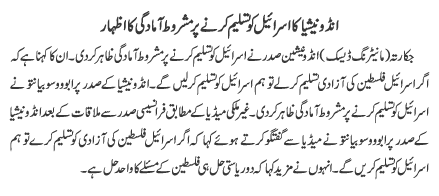 انڈونیشیا کا اسرائیل کو تسلیم کرنے پر مشروط آمادگی کا اظہار
جکارتہ (مانیٹرنگ ڈیسک) انڈونیشین صدر نے اسرائیل کو تسلیم کرنے پر مشروط آمادگی ظاہر کر دی۔ ان کا کہنا ہے کہ
اگر اسرائیل فلسطین کی آزادی تسلیم کرلے تو ہم اسرائیل کو تسلیم کرلیں گے۔ انڈونیشیا کے صدر پرابووو سوبیانتو نے
اسرائیل کو تسلیم کرنے پر مشروط آمادگی ظاہر کردی۔ غیر ملکی میڈیا کے مطابق فرانسیسی صدر سے ملاقات کے بعد انڈونیشیا
کے صدر پرابووو سوبیانتو نے میڈیا سے گفتگو کرتے ہوئے کہا کہ اگر اسرائیل فلسطین کی آزادی کو تسلیم کرے تو ہم
اسرائیل کو تسلیم کریں گے۔ انہوں نے مزید کہا کہ دو ریاستی حل ہی فلسطین کے مسئلے کا واحد حل ہے۔